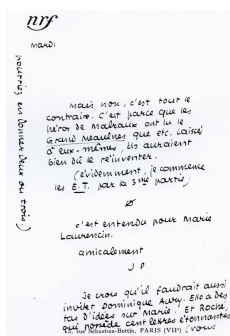 nrf
mardi
mais non, c'est tout le
contraire. C'est parce que les
héros de Malraux ont lu le
Grand Meaulnes que etc. Laissés
à eux-mêmes, ils auraient
bien dû le réinventer.
(évidemment, je commence
les E.T. par la 3me partie)
c'est entendu pour Marie
Laurencin.
amicalement
J P
Je crois qu'il faudrait aussi
inviter Dominique Aury. Elle a des
tas d'idées sur Marie. Et Roché,
qui possède cent lettres étonnantes
(vous
pourriez en donner deux ou trois)
5, rue Sébastien-Bottin, PARIS (VIIe)